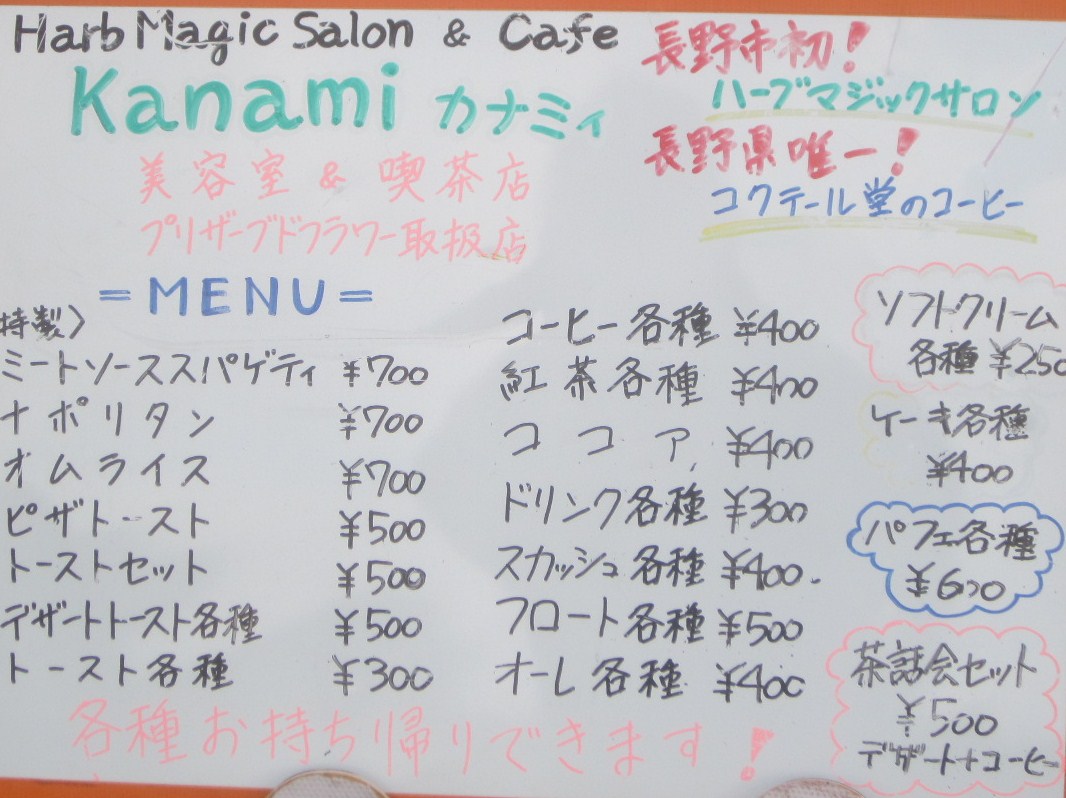 Harb Magic Salon & Cafe
Kanami カナミィ
美容室 & 喫茶店
プリザーブドフラワー取扱店
長野市初!
ハーブマジックサロン
長野県唯一!
コクテール堂のコーヒー
=MENU=
特製〉
ミートソーススパゲティ ¥700
ナポリタン ¥700
オムライス ¥700
ピザトースト ¥500
トーストセット ¥500
デザートトースト各種 ¥500
トースト各種 ¥300
コーヒー各種 ¥400
紅茶各種 ¥400
ココア ¥400
ドリンク各種 ¥300
スカッシュ各種 ¥400.
フロート各種 ¥500
オーレ各種 ¥400
ソフトクリーム
各種 ¥250
ケーキ各種
¥400
パフェ各種
¥600
茶話会セット
¥500
デザート+コーヒー
各種お持ち帰りできます!